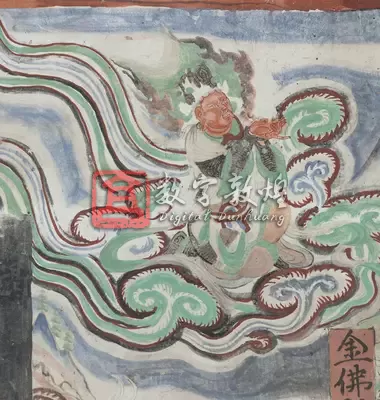 数字敦煌
Digital Dunhuang
金佛